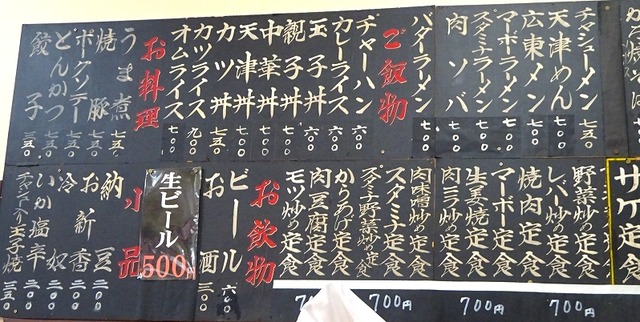 チャーシューメン 七五〇
天津めん 七〇〇
広東メン 七〇〇
マーボラーメン 七〇〇
スタミナラーメン 七〇〇
肉ソバ 七〇〇
バターラーメン 七〇〇
ご飯物
チャーハン 六〇〇
カレーライス 六〇〇
玉子丼 六〇〇
親子丼 七〇〇
中華丼 七〇〇
天津丼 七〇〇
カツ丼 七〇〇
カツライス 九〇〇
オムライス 七〇〇
お料理
うま煮 七五〇
焼豚 七五〇
ポークソテー 七五〇
とんかつ 七五〇
餃子 三五〇
サケ定食
野菜炒め定食
レバー炒め定食
焼肉定食
マーボー定食
生姜焼定食
肉ニラ炒め定食
肉味噌炒め定食
スタミナ定食
スタミナ野菜炒め定食
からあげ定食
肉豆腐定食
モツ炒め定食
700円
700円
700円
お飲物
ビール 六〇〇
お酒 三〇〇
生ビール
500円
小品
納豆 二〇〇
お新香 二〇〇
冷奴 二〇〇
いか塩辛 二〇〇
玉子焼 三五〇